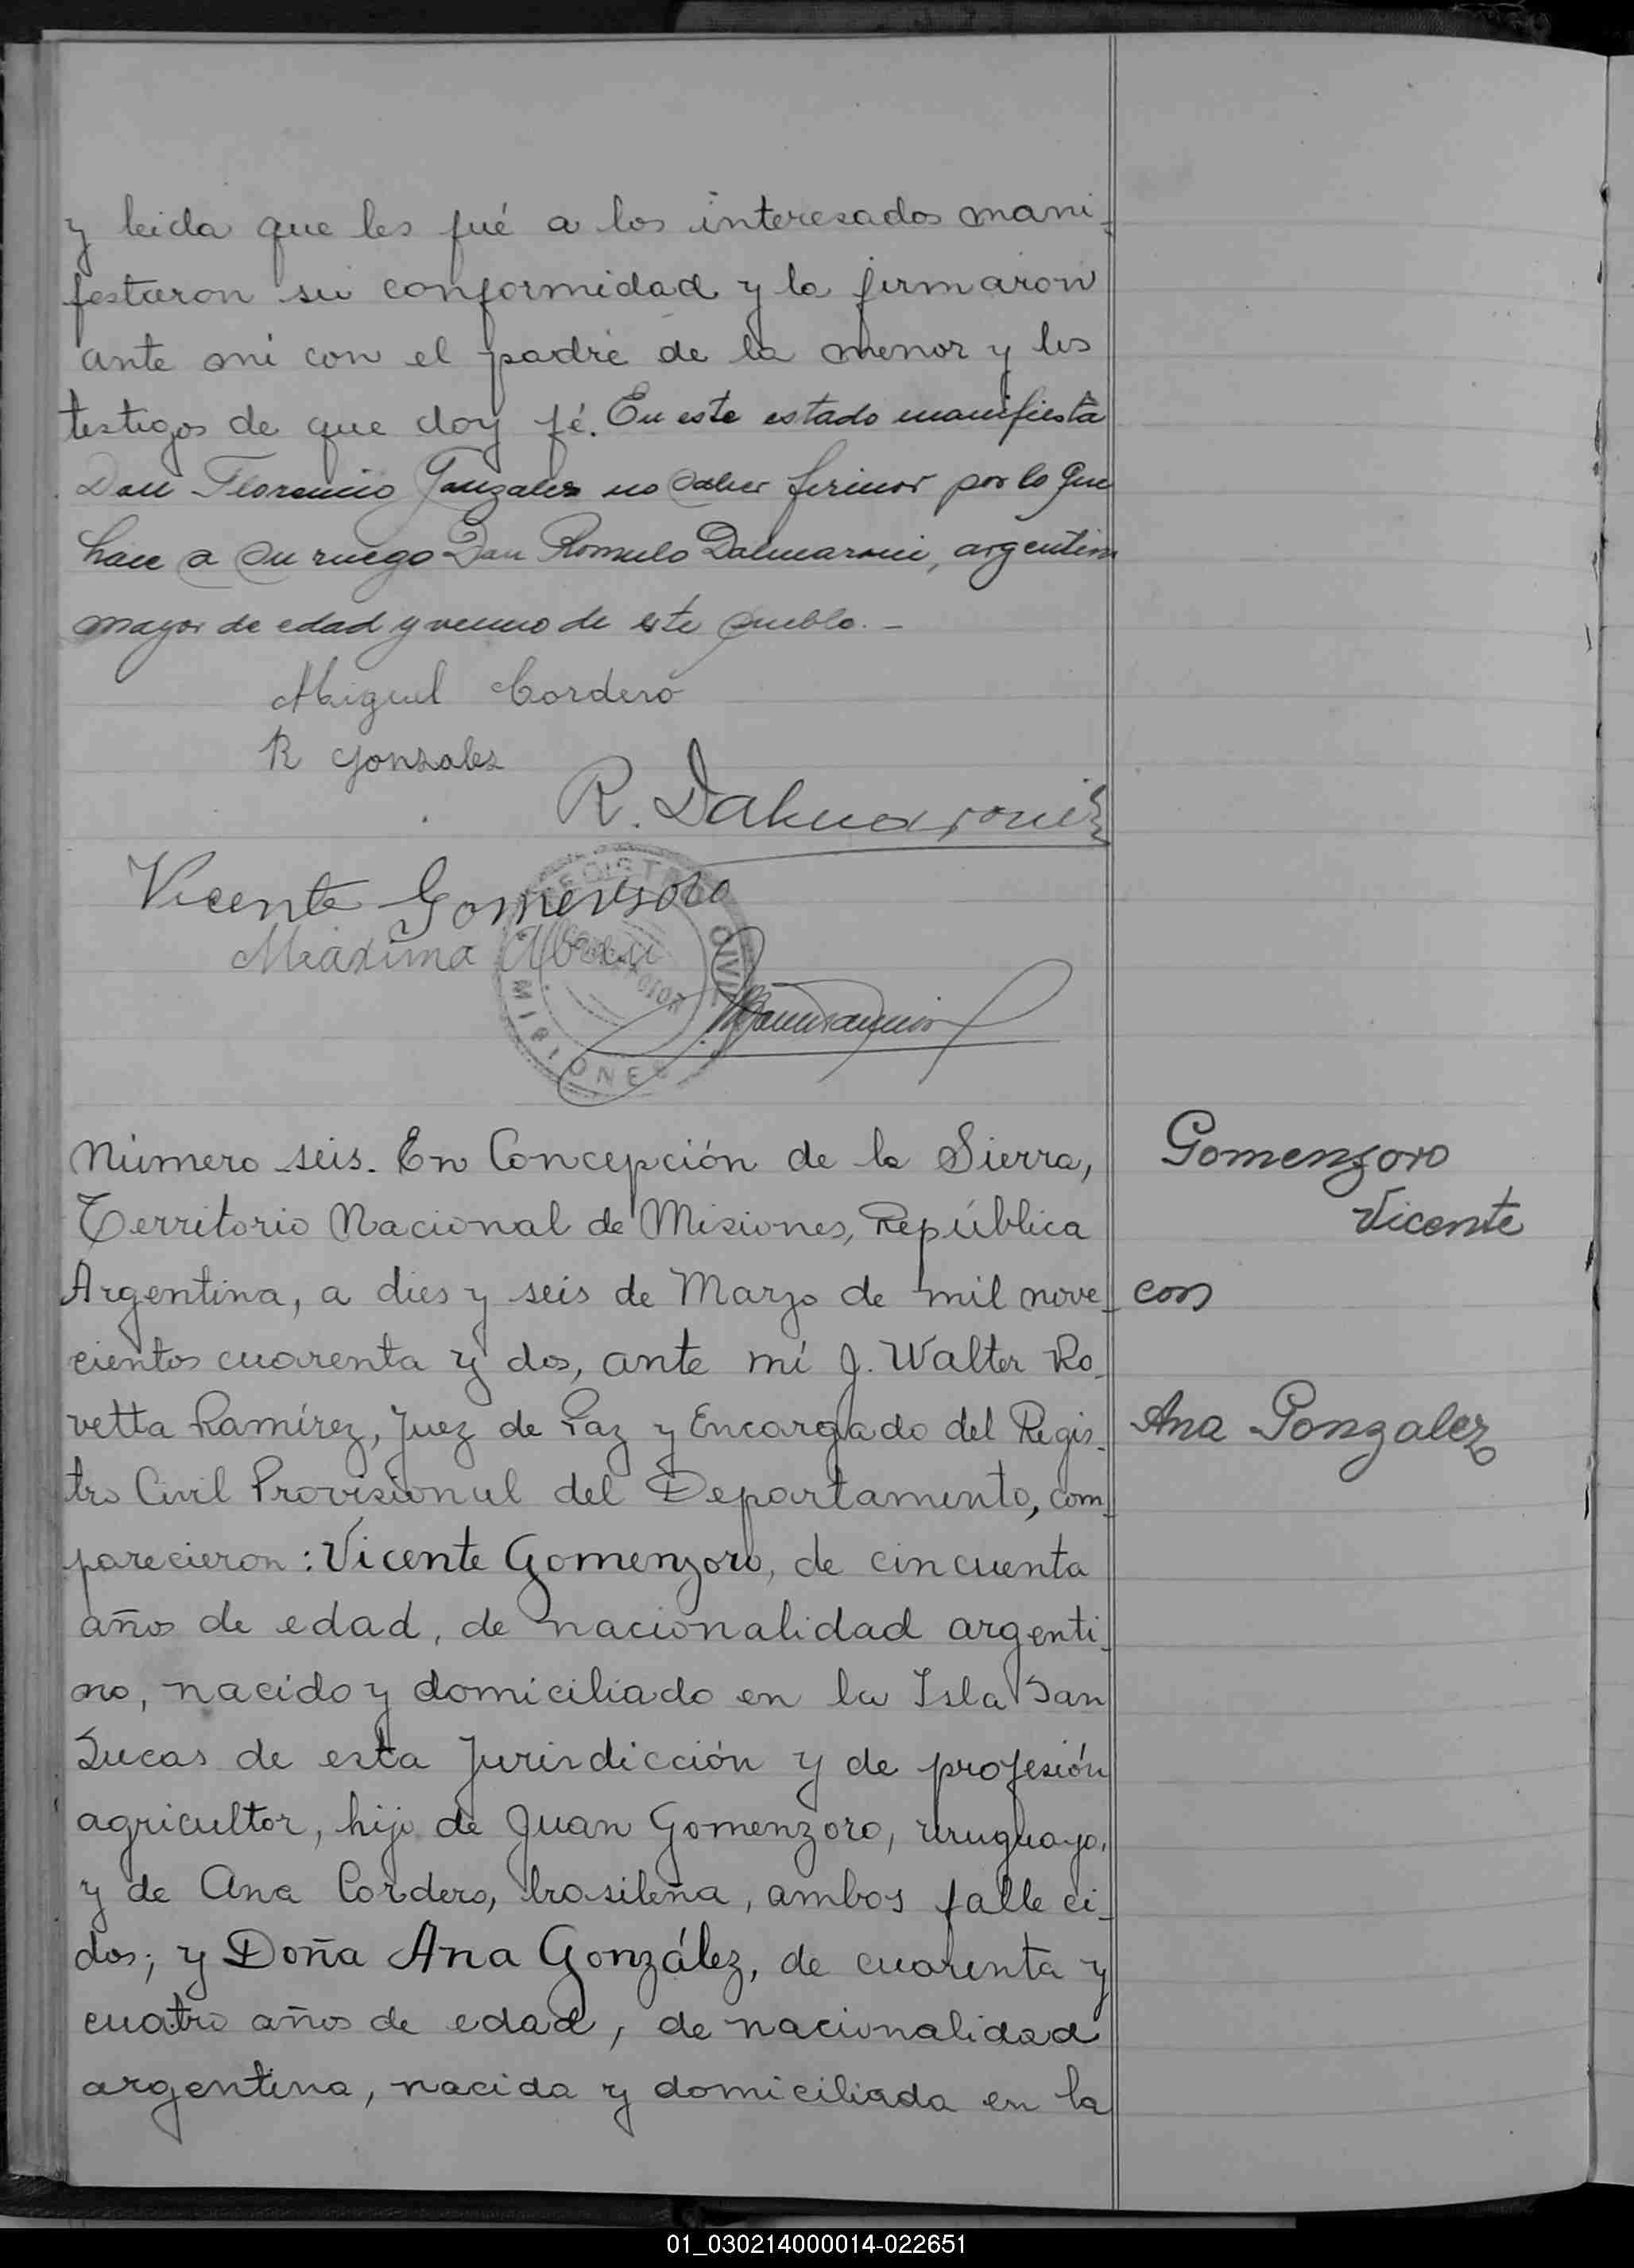 y leida que les fué a los interesados mani-
festaron su conformidad y la firmaron
ante mi con el padre de la menor y los
testigos de que doy fé. En este estado manifiesta
Don Florencio Gonzales no saber firmar por lo que
hace a su ruego Don Romulo Dalmaroni, argentino
mayor de edad y vecino de este pueblo.-
Miguel Cordero
R Gonzalez
R. Dalmaroni
Vicente Gomensoro
Máxima
REGISTRO CIVIL
MISIONES
Número seis. En Concepción de la Sierra,
Territorio Nacional de Misiones, República
Argentina, a dies y seis de Marzo de mil nove-
cientos cuarenta y dos, ante mí J. Walter Ro-
vetta Ramírez, Juez de Paz y Encargado del Regis-
tro Civil Provisional del Departamento, com-
parecieron: Vicente Gomenzoro, de cincuenta
años de edad, de nacionalidad argenti-
no, nacido y domiciliado en la Isla San
Lucas de esta Jurisdicción y de profesión
agricultor, hijo de Juan Gomenzoro, uruguayo,
y de Ana Cordero, brasileña, ambos falleci-
dos; y Doña Ana González, de cuarenta y
cuatro años de edad, de nacionalidad
argentina, nacida y domiciliada en la
Gomenzoro
Vicente
con
Ana Gonzalez
01_030214000014-022651